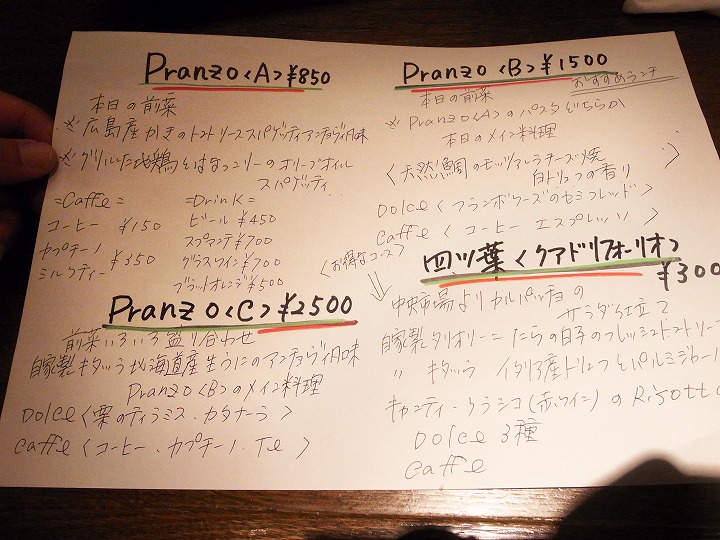 Pranzo <A> ¥850
本日の前菜
※ 広島産かきのトマトソーススパゲッティアンチョヴィ風味
※ グリルした地鶏とはまっコリーのオリーブオイル
スパゲッティ
=Caffe=
コーヒー ¥150
カプチーノ
ミルクティー ¥350
=Drink=
ビール ¥450
スプマンテ ¥700
グラスワイン ¥700
ブラッドオレンジ ¥500
Pranzo <B> ¥1500
おすすめランチ
本日の前菜
※ Pranzo <A> のパスタどちらか
本日のメイン料理
<天然鯛のモッツァレラチーズ焼
白トリュフの香り>
Dolce <フランボワーズのセミフレッド>
Caffe <コーヒー エスプレッソ>
Pranzo <C> ¥2500
前菜いろいろ盛り合わせ
自家製キタッラ 北海道産生うにのアンチョヴィ風味
Pranzo <B> のメイン料理
Dolce <栗のティラミス・カタラーナ>
Caffe <コーヒー・カプチーノ・Te>
<お得なコース>
四ツ葉 <クアドリフォーリオ>
¥300
中央市場よりカルパッチョの
サラダ仕立て
自家製タリオリーニ たらの白子のフレッシュトマトソー
〃 キタッラ イタリア産トリュフとパルミジャー
キャンティークラシコ(赤ワイン)のRisotto
Dolce 3種
Caffe